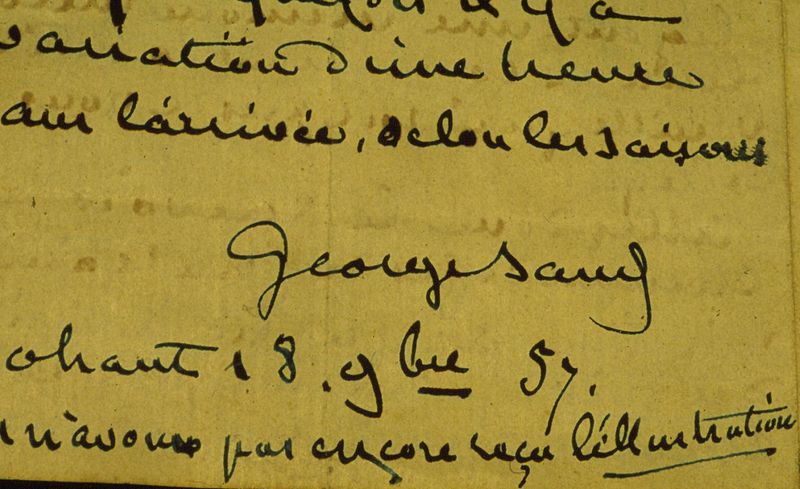 il y a
variation d'une heure
sur l'arrivée, selon les saisons
George Sand
ohant 18. 9bre 57.
n'avons pas encore reçu l'illustration